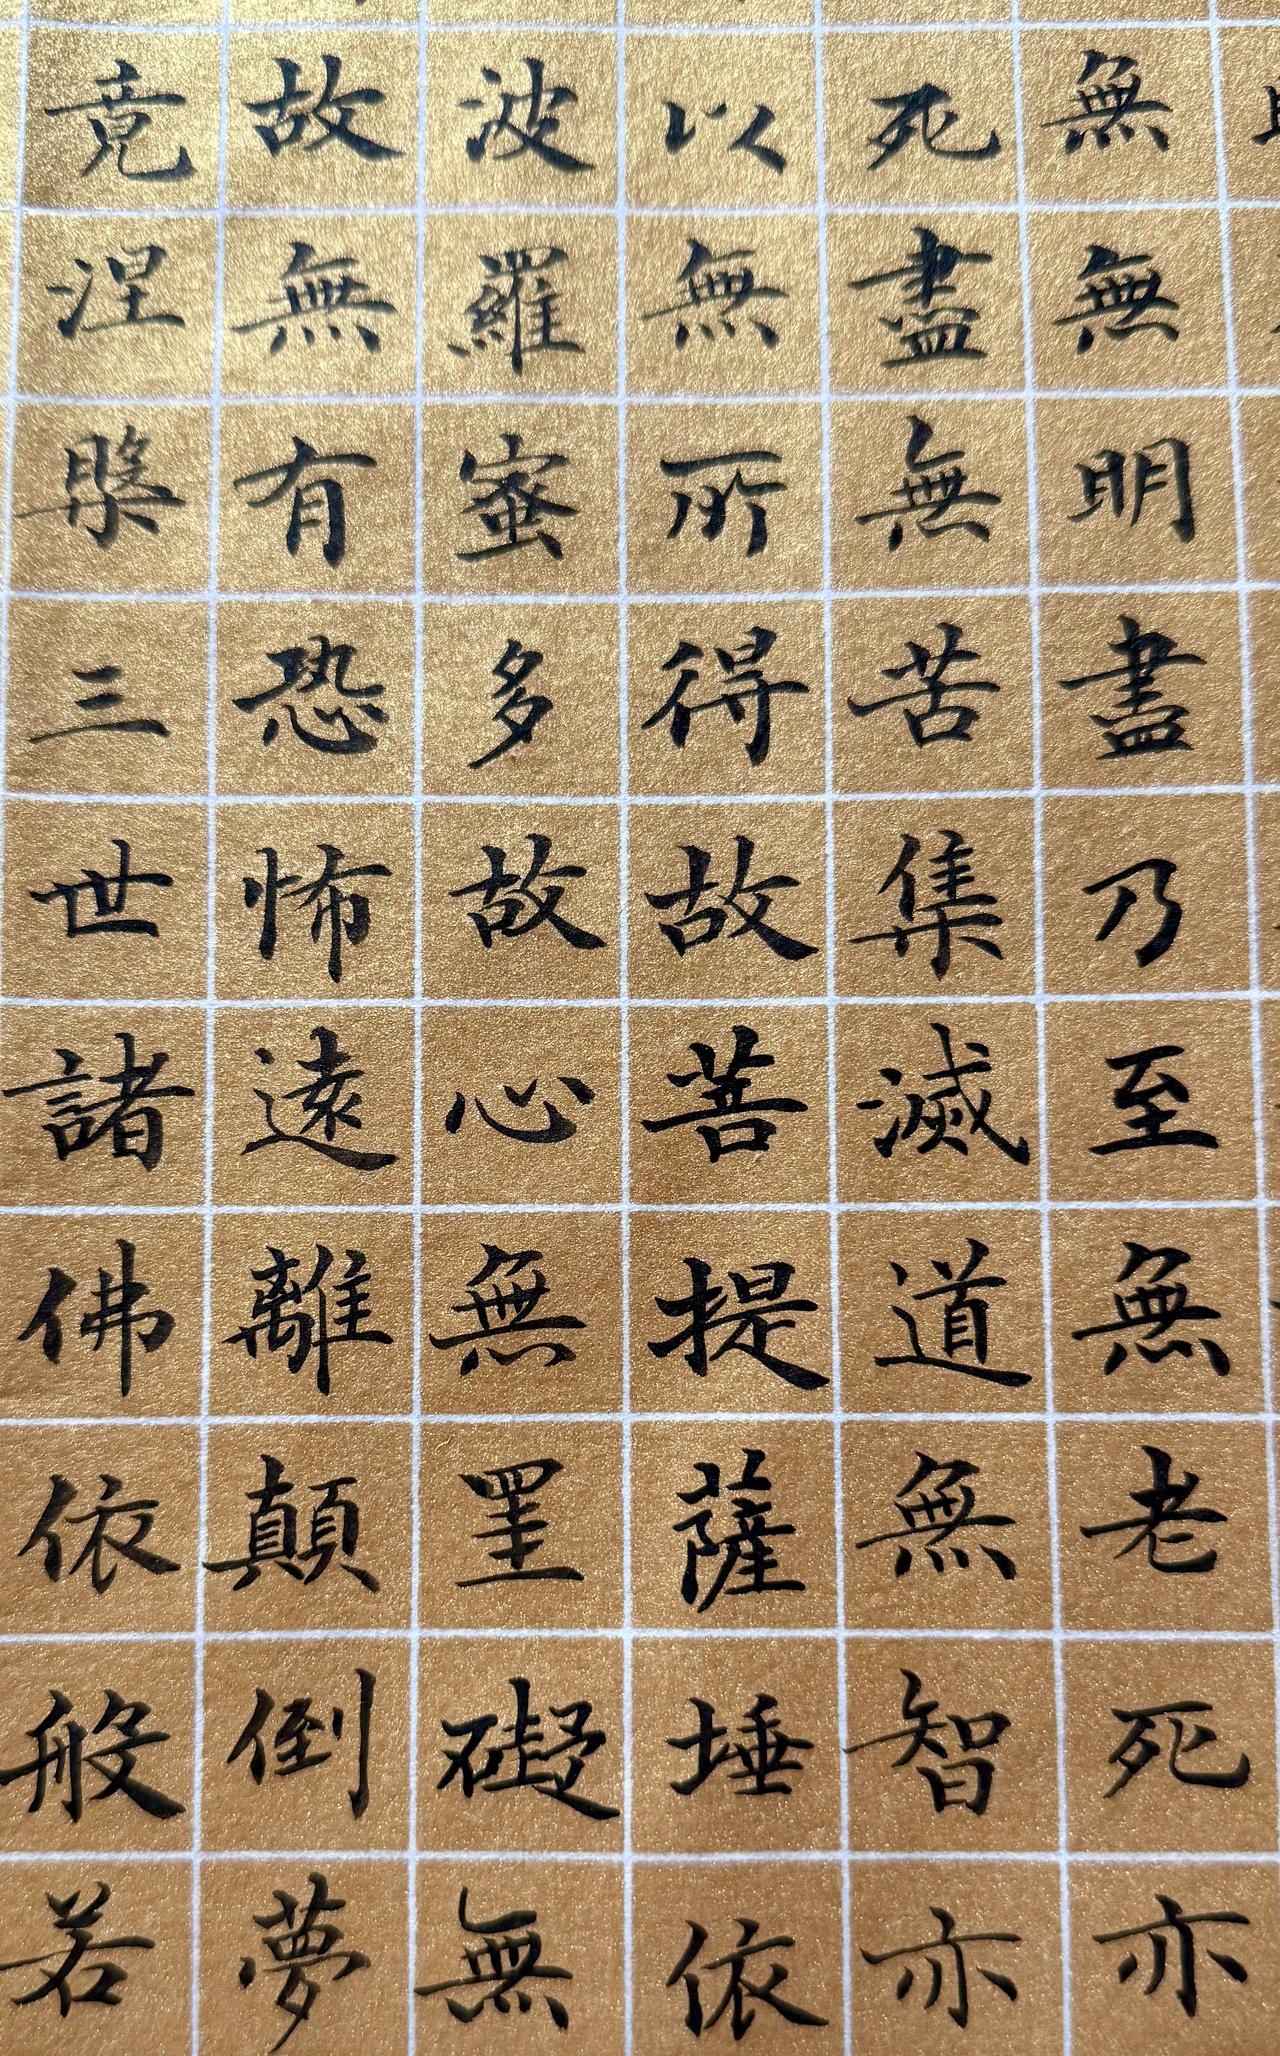 無無明盡乃至無老死亦
死盡無苦集滅道無智亦
以無所得故菩提薩埵依
波羅蜜多故心無罣礙無
故無有恐怖遠離顛倒夢
竟涅槃三世諸佛依般若